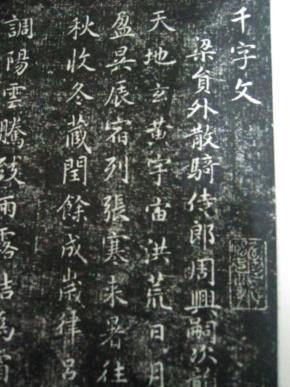 千字文
梁員外散騎侍郎周興嗣次韻
天地玄黃宇宙洪荒日月
盈昃辰宿列張寒來暑往
秋收冬藏閏餘成歲律呂
調陽雲騰致雨露結為霜